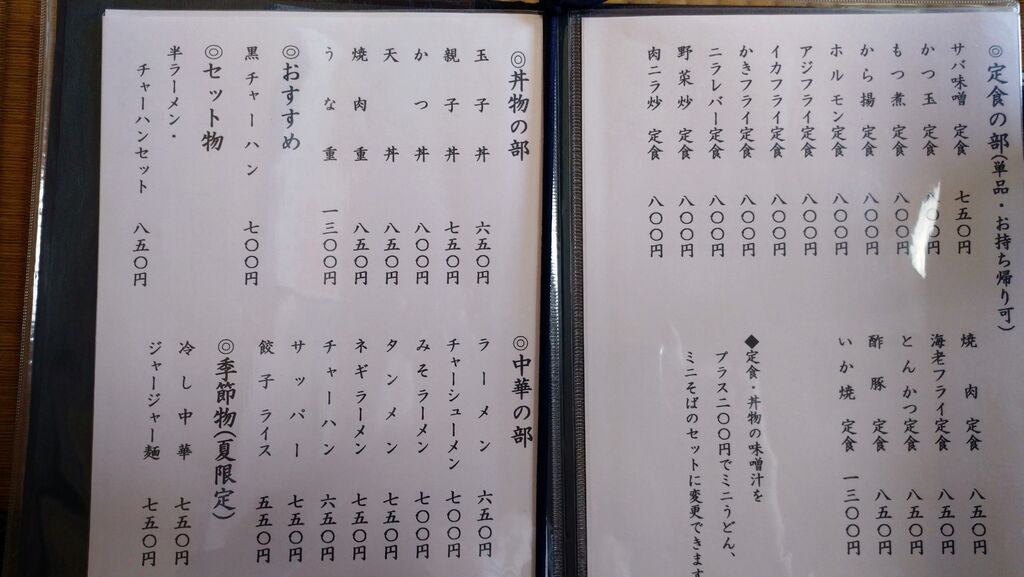 ◎定食の部(単品・お持ち帰り可)
サバ味噌 定食 七五〇円
かつ玉 定食 八〇〇円
もつ煮 定食 八〇〇円
から揚 定食 八〇〇円
ホルモン定食 八〇〇円
アジフライ定食 八〇〇円
イカフライ定食 八〇〇円
かきフライ定食 八〇〇円
ニラレバー定食 八〇〇円
野菜炒 定食 八〇〇円
肉ニラ炒 定食 八〇〇円
焼肉 定食 八五〇円
海老フライ定食 八五〇円
とんかつ定食 八五〇円
酢豚 定食 八五〇円
いか焼 定食 一三〇〇円
◆定食・丼物の味噌汁を
プラス二〇〇円でミニうどん、
ミニそばのセットに変更できます
◎丼物の部
玉子丼 六五〇円
親子丼 七五〇円
かつ丼 八〇〇円
天丼 八五〇円
焼肉重 八五〇円
うな重 一三〇〇円
◎おすすめ
黒チャーハン 七〇〇円
◎セット物
半ラーメン・
チャーハンセット 八五〇円
◎中華の部
ラーメン 六五〇円
チャーシューメン 七〇〇円
みそラーメン 七〇〇円
タンメン 七五〇円
ネギラーメン 七五〇円
チャーハン 六五〇円
サッパー 七五〇円
餃子ライス 五五〇円
◎季節物(夏限定)
冷し中華 七五〇円
ジャージャー麺 七五〇円